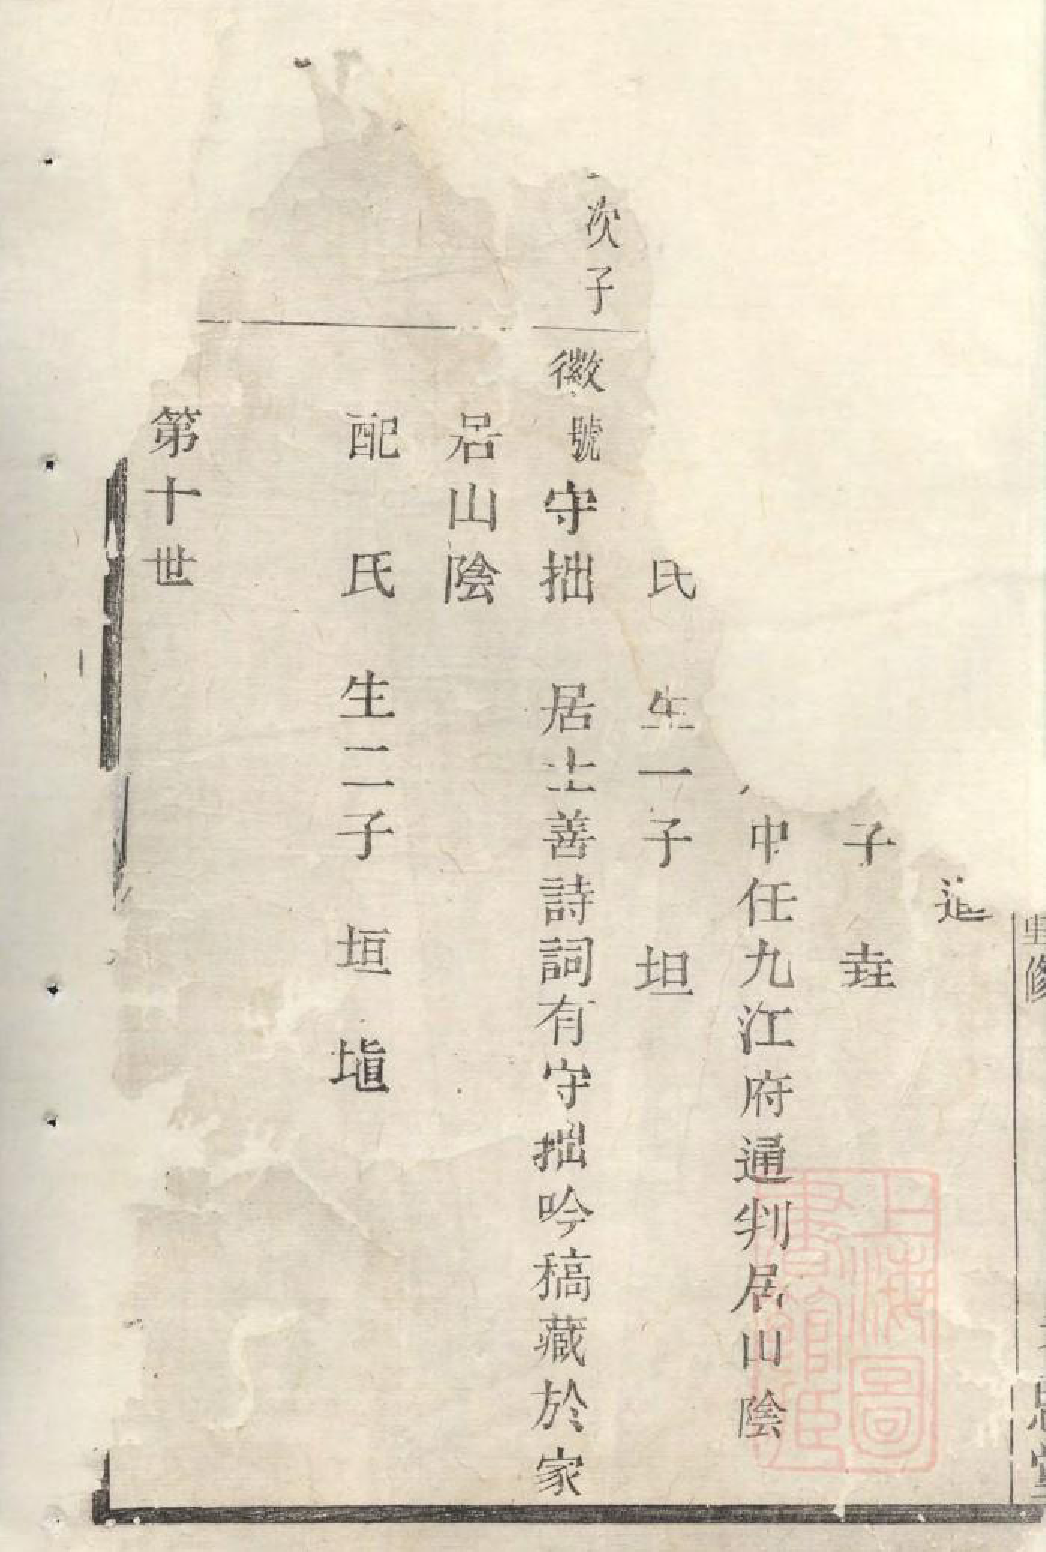 修
思堂
子 垚
中任九江府通判居山陰
氏 生一子 坦
次子
徽號守拙 居士善詩詞有守拙吟稿藏於家
居山陰
配 氏 生二子 垣 塡
第十世
上海圖
書館藏